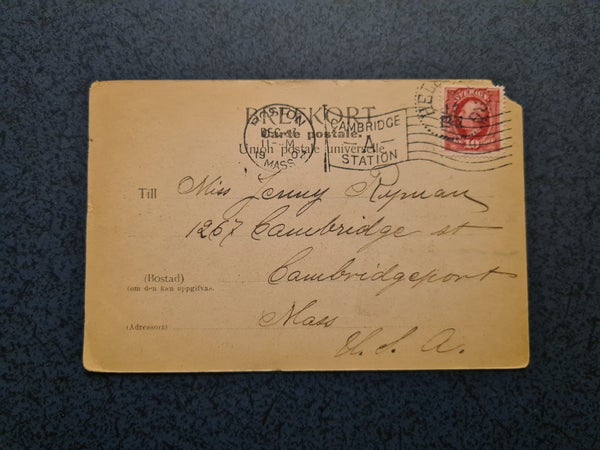 BREFKORT
Carte postale.
Union postale universelle
BOSTON
DEC 16
11 - M
1907
MASS.
CAMBRIDGE
A
STATION
SVERIGE
10
Till Miss Jenny Ryman
1267 Cambridge st
(Bostad)
(om den kan uppgifvas.
Cambridgeport
(Adressort)
Mass
U.S.A.